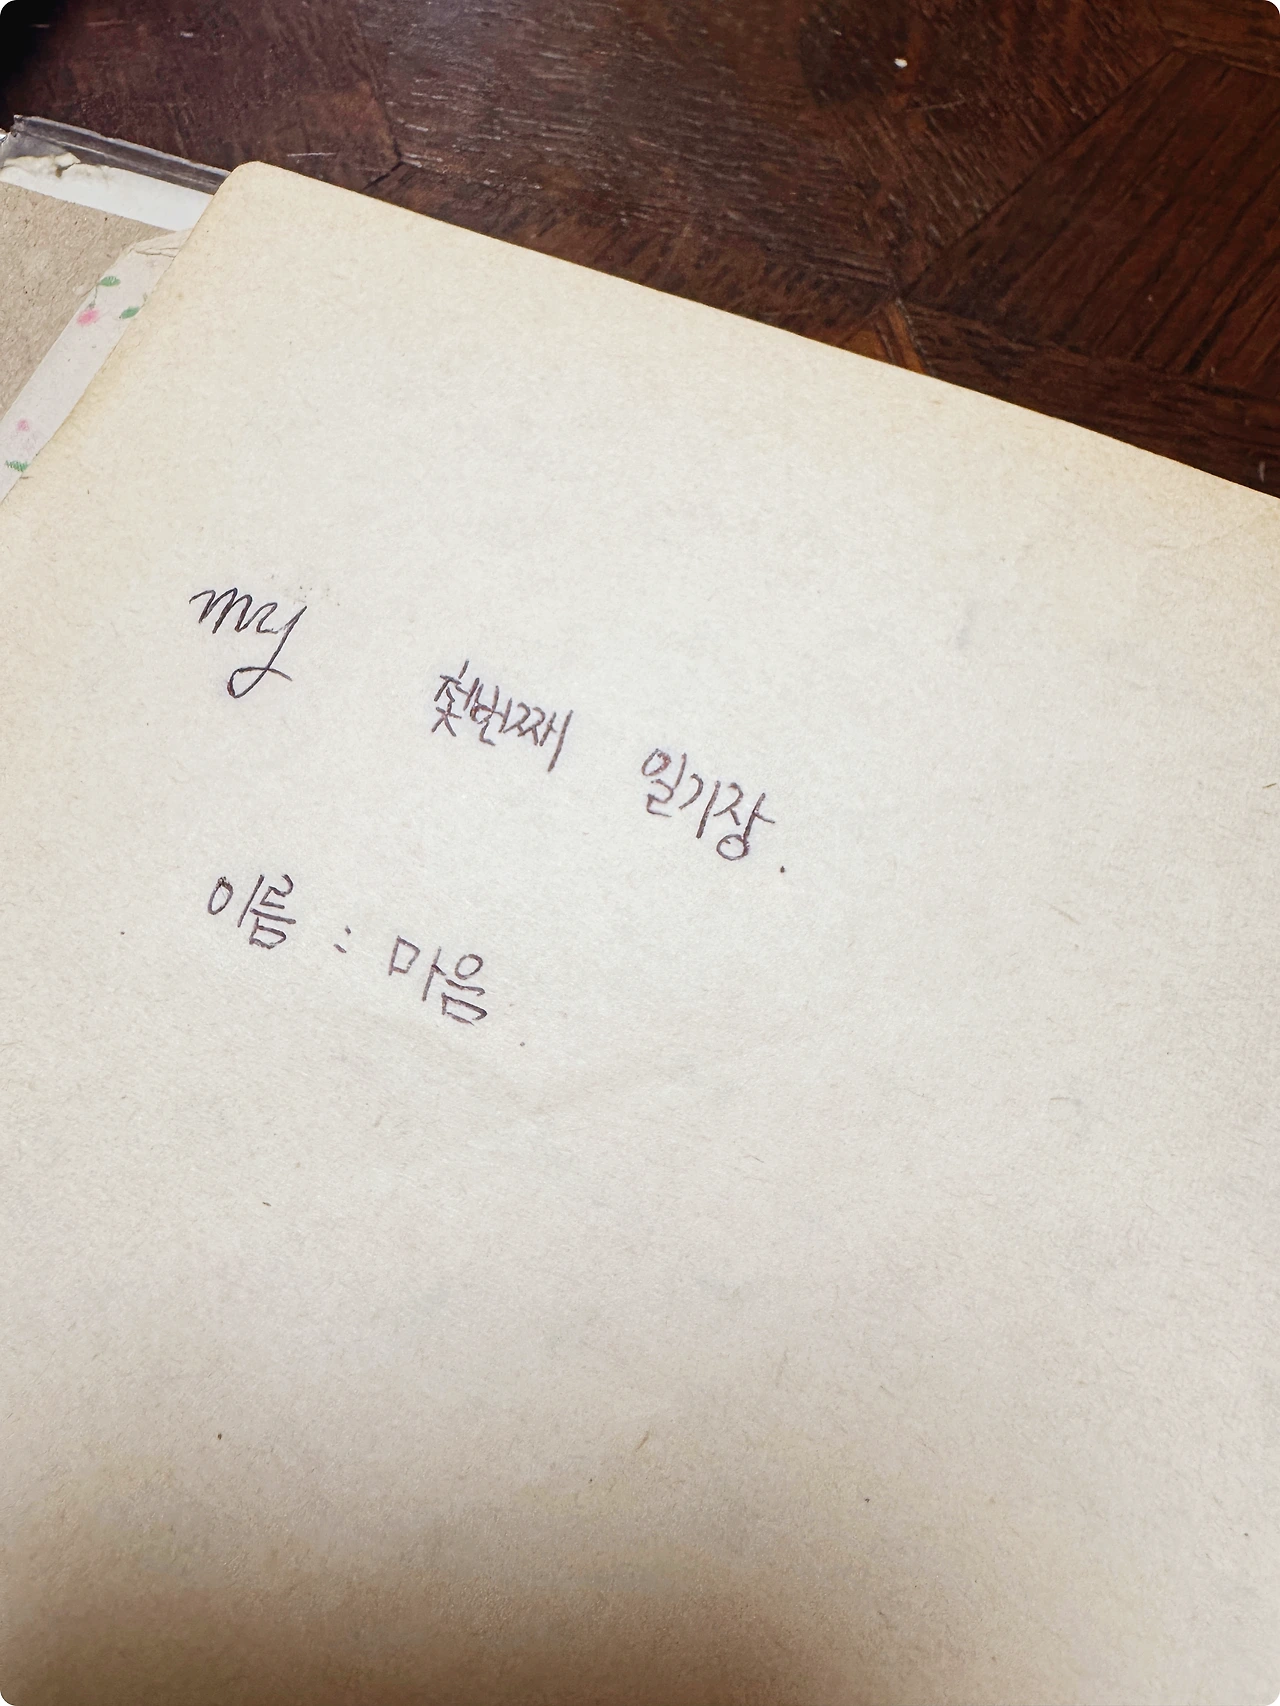 my 첫번째 일기장.
이름 : 마음.